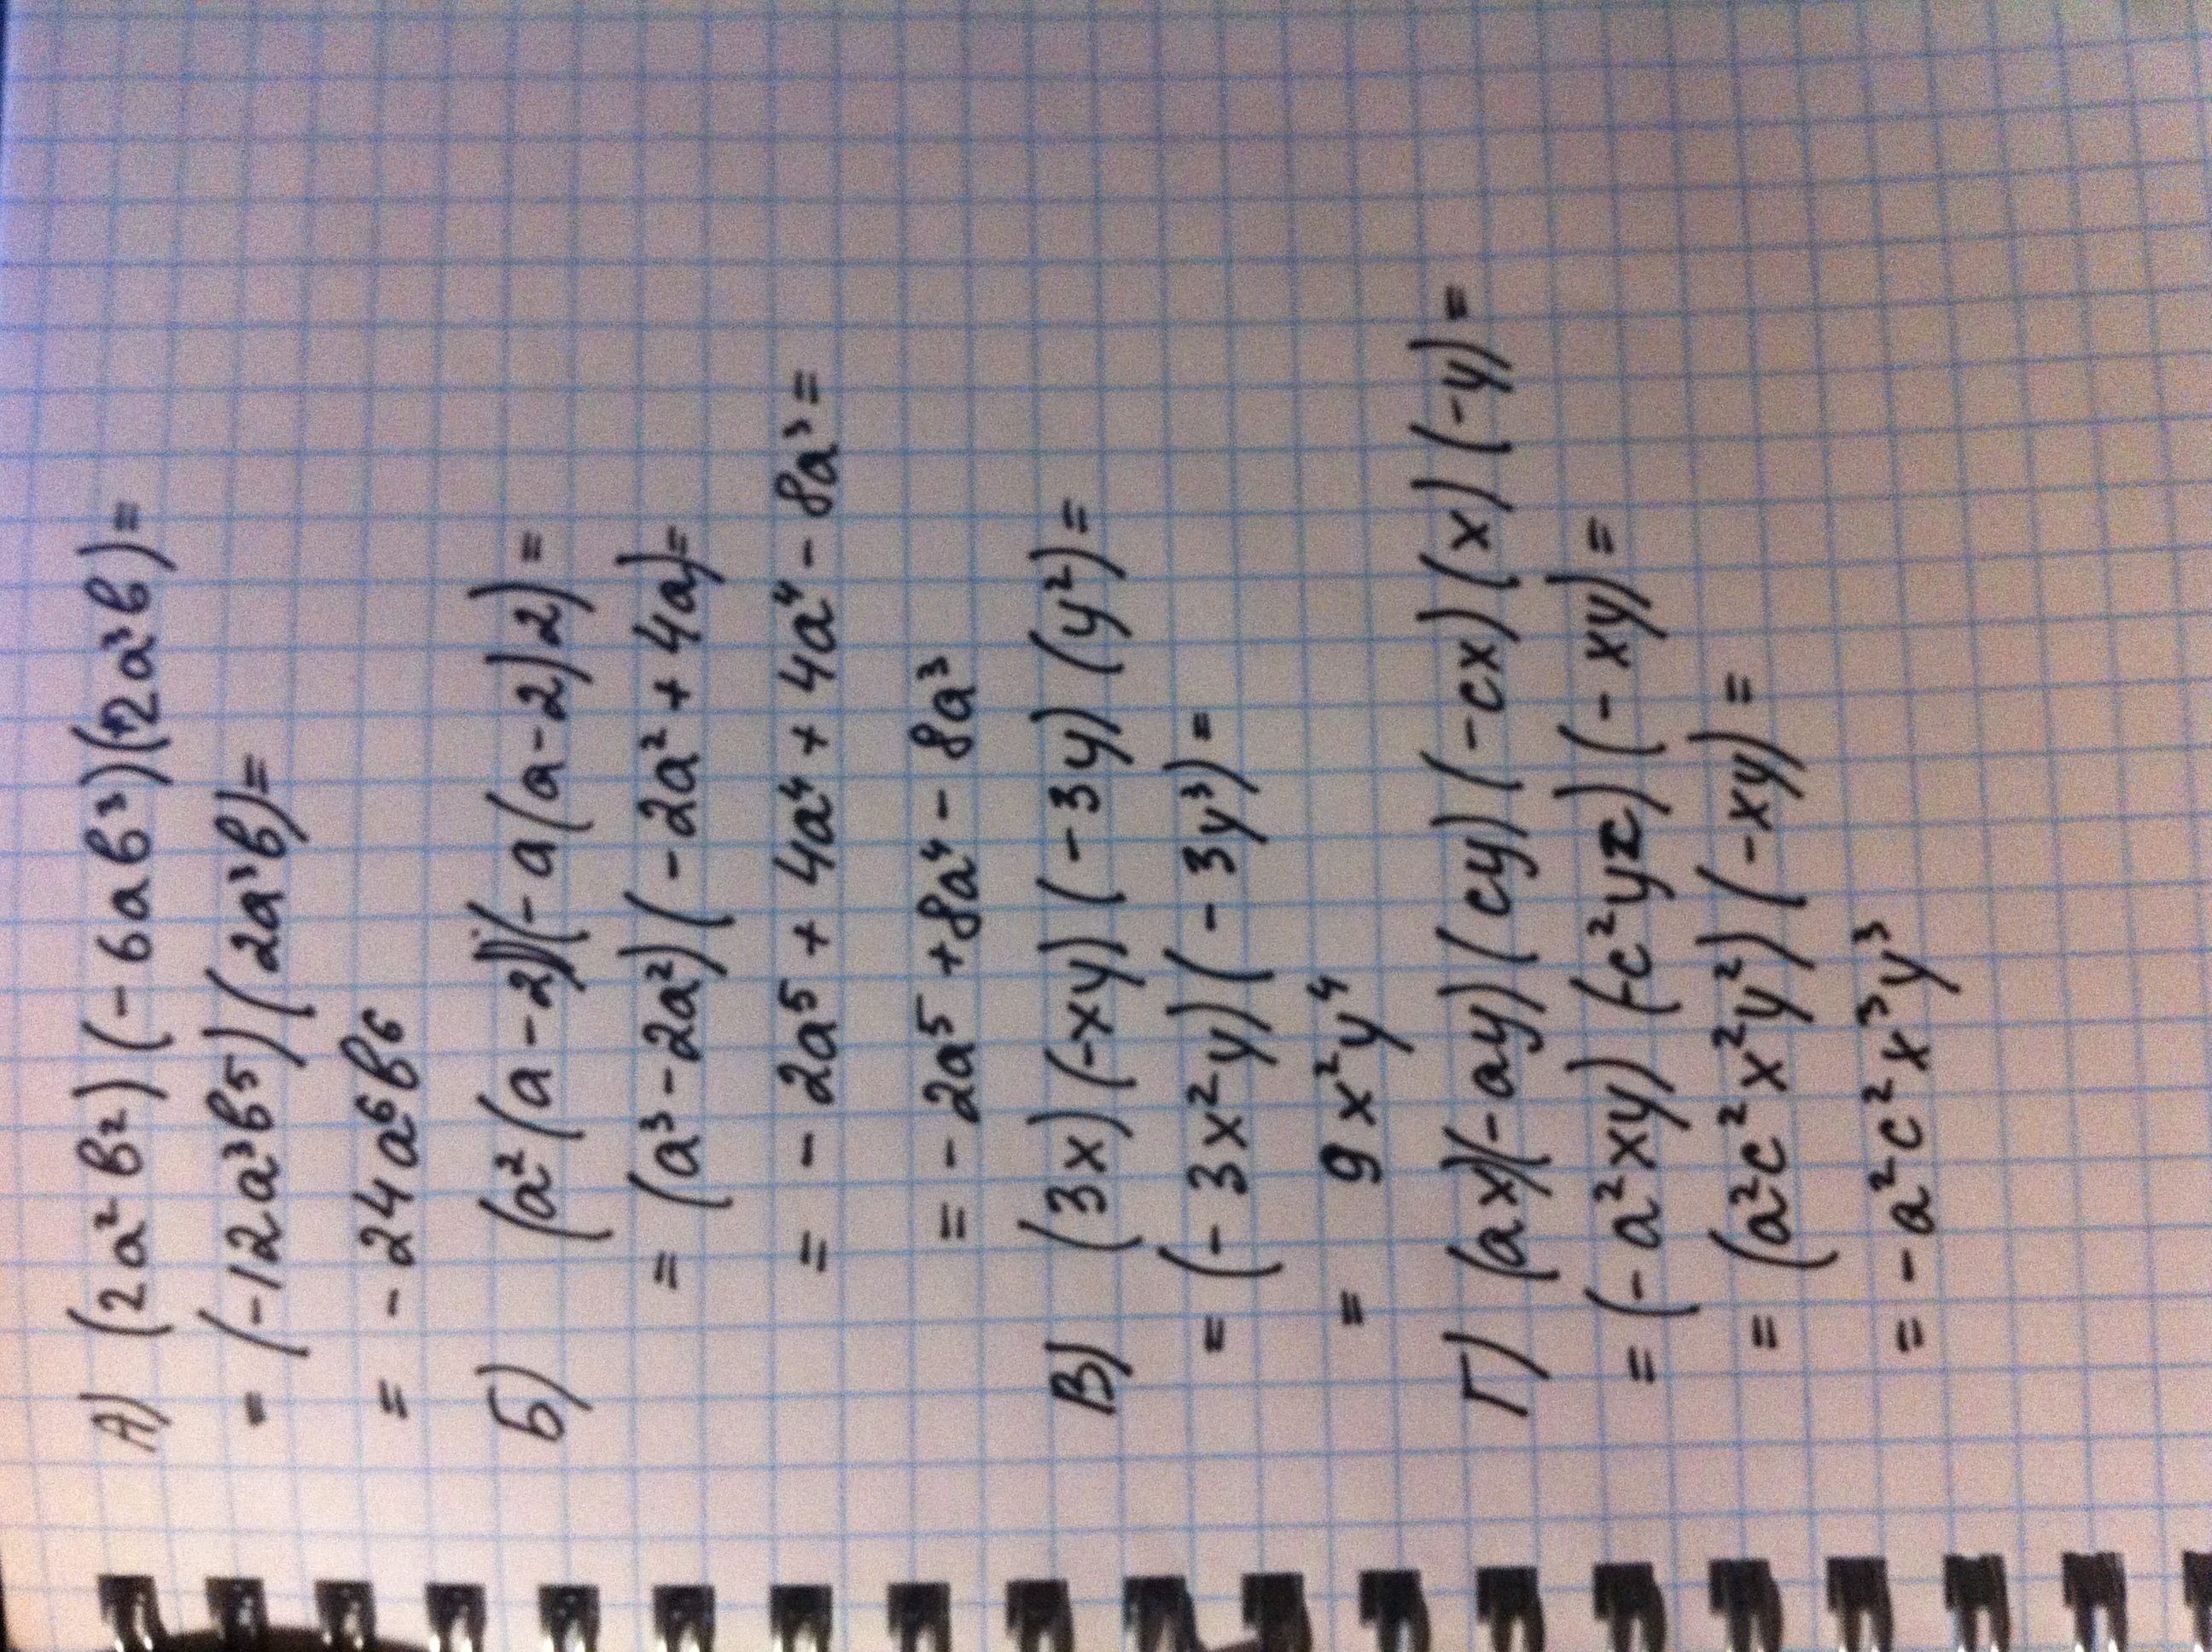 А) (2a²b²)(-6ab³)(2a³b)=
= (-12a³b⁵)(2a³b)=
= -24a⁶b⁶
Б) (a²(a-2))(-a(a-2)2)=
= (a³-2a²)(-2a²+4a)=
= -2a⁵+4a⁴+4a⁴-8a³=
= -2a⁵+8a⁴-8a³
В) (3x)(-xy)(-3y)(y²)=
= (-3x²y)(-3y³)=
= 9x²y⁴
Г) (ax)(-ay)(cy)(-cx)(x)(-y)=
= (-a²xy)(-c²yx)(-xy)=
= (a²c²x²y²)(-xy)=
= -a²c²x³y³